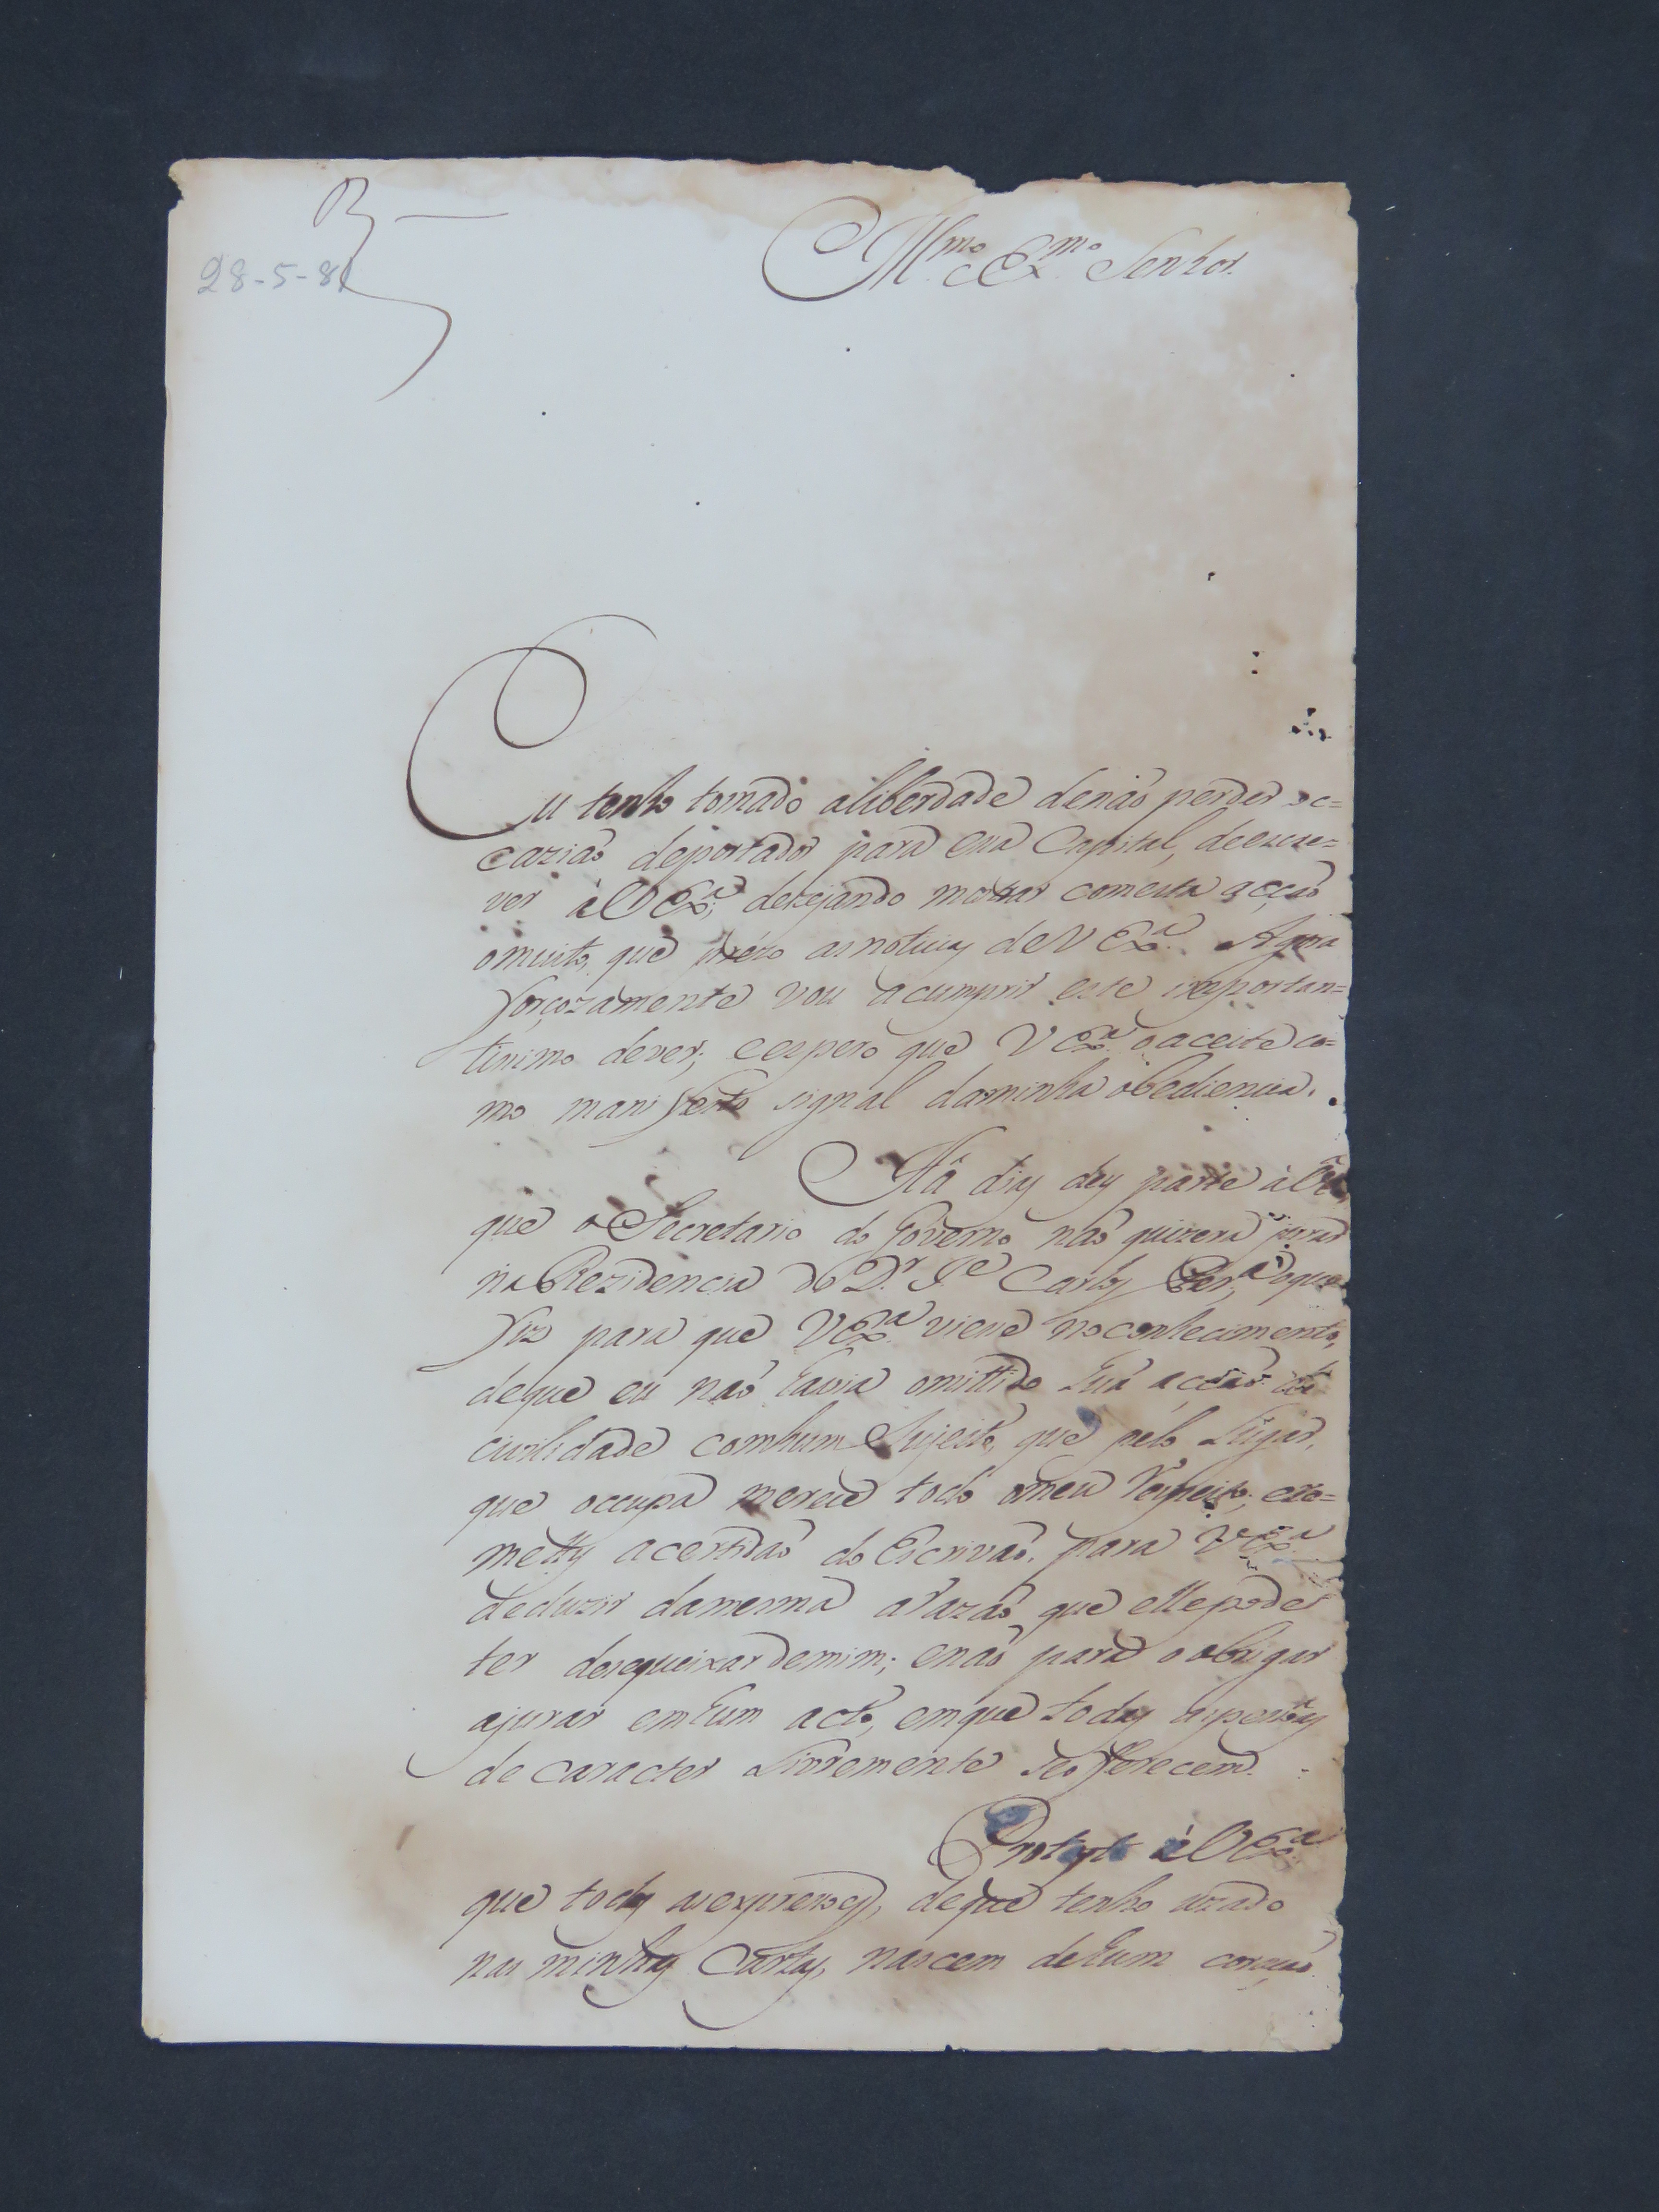 R
28-5-81
Ill.mo e Ex.mo Senhor.
Eu tenho tomado aliberdade denaõ perder oc=
caziaõ deportador para essa Capital, deescre=
ver áV Ex.a; dezejando mostrar comesta acçaõ
omuito, que prézo asnoticias deV Ex.a. Agora
forçozamente vou acumprir este importan=
tissimo dever; eespero que V Ex.a oaceite co=
mo manifesto signal daminha obediencia.
Há dias dey parte áV Ex.a
que o Secretario do Governo naõ quizera jurar
na Rezidencia do D.r J.e Carlos Per.a, oque
fiz para que V Ex.a viesse noconhecimento,
deque eu naõ havia omittido huã acçaõ de
civilidade comhum Sujeito, que pélo Lugar,
que occupa merece todo omeu respeito; ere=
metty acertidaõ do Escrivaõ, para V Ex.a
deduzir damesma arazaõ, que ellepode
ter desequeixar demim; enaõ para oobrigar
ajurar emhum acto, emque todas aspessoas
de caracter Livremente seofferecem.
Protesto áV Ex.a
que todas asexpressoes, deque tenho uzado
nas minhas Cartas, nascem dehum coraçaõ